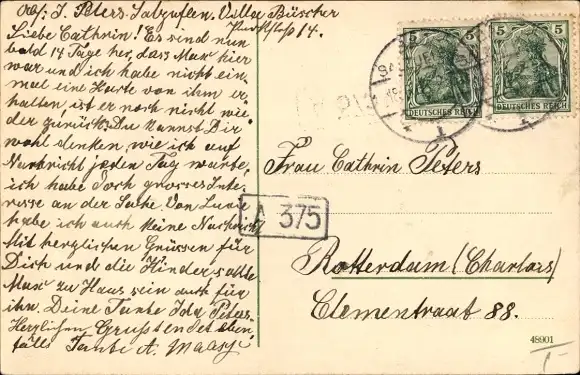 Abs: I. Peters. Salzuflen. Villa Büscher
Parkstr. 14.
Liebe Cathrin! Es sind nun
bald 14 Tage her, dass Max hier
war und ich habe nicht ein-
mal eine Karte von ihm er-
halten, ist er noch nicht wie-
der zurück. Du kannst Dir
wohl denken, wie ich auf
Nachricht jeden Tag warte,
ich habe doch grosses Inte-
resse an der Sache. Von Lucie
habe ich auch keine Nachricht
Mit herzlichen Grüssen für
Dich und die Kinder sollte
Max zu Haus sein auch für
ihn. Deine Tante Ida Peters.
Herzlichen Gruss sendet eben
falls Tante A.
5 5
DEUTSCHES REICH
5 5
DEUTSCHES REICH
Frau Cathrin Peters
A 375
Rotterdam (Charlois)
Clementraat 88.
48901